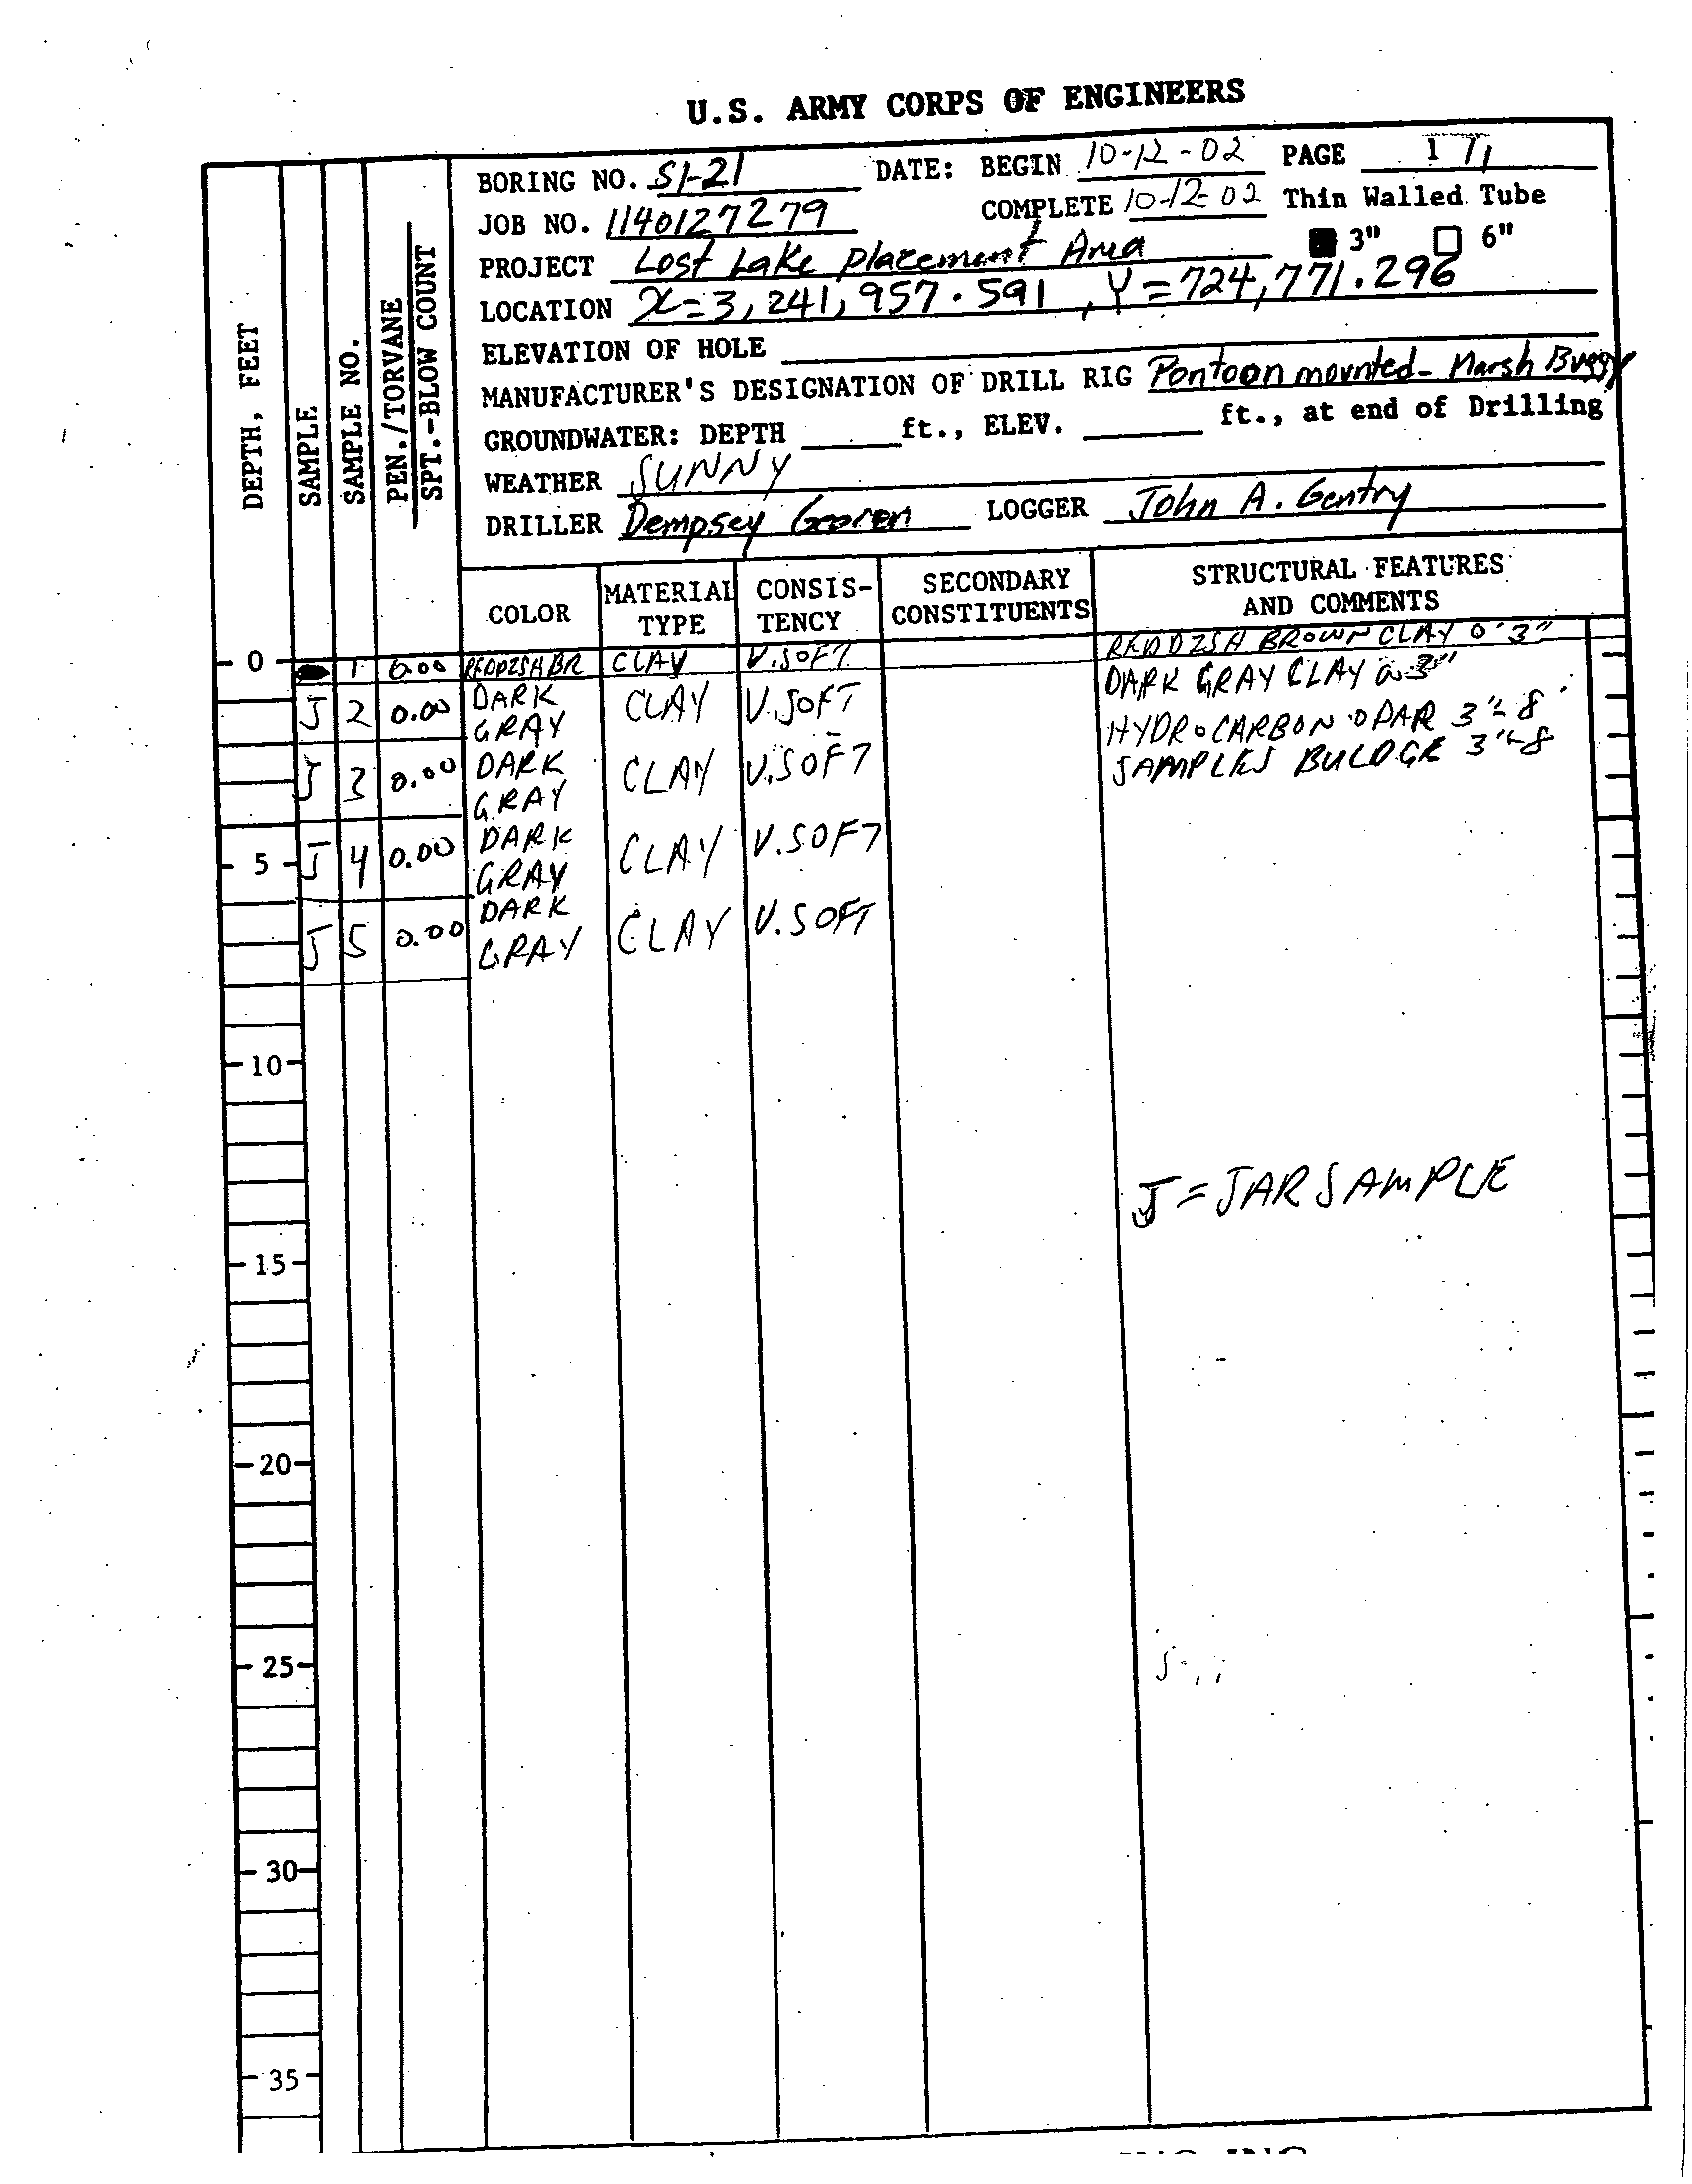 U.S. ARMY CORPS OF ENGINEERS
BORING NO. SI-21 DATE: BEGIN 10-12-02 PAGE 1
JOB NO. 1140127279 COMPLETE 10-12-02 Thin Walled Tube
PROJECT Lost Lake Placement Area 3" 6"
LOCATION X=3,241,957.591, Y=724,771.296
ELEVATION OF HOLE
MANUFACTURER'S DESIGNATION OF DRILL RIG Pontoon mounted- Marsh Buggy
GROUNDWATER: DEPTH ft., ELEV. ft., at end of Drilling
WEATHER SUNNY
DRILLER Dempsey LOGGER John A. Gentry
DEPTH, FEET
SAMPLE
SAMPLE NO.
PEN./TORVANE
SPT.-BLOW COUNT
COLOR MATERIAL TYPE CONSIS-TENCY SECONDARY CONSTITUENTS STRUCTURAL FEATURES AND COMMENTS
0 1 0.00 REDDISH BR CLAY V.SOFT REDDISH BROWN CLAY 0'3"
J 2 0.00 DARK GRAY CLAY V.SOFT DARK GRAY CLAY @ 3"
HYDROCARBON ODAR 3"-8'
J 3 0.00 DARK GRAY CLAY V.SOFT SAMPLES BULDGE 3"-8
5 J 4 0.00 DARK GRAY CLAY V.SOFT
J 5 0.00 DARK GRAY CLAY V.SOFT
10
J = JAR SAMPLE
15
20
25
30
35